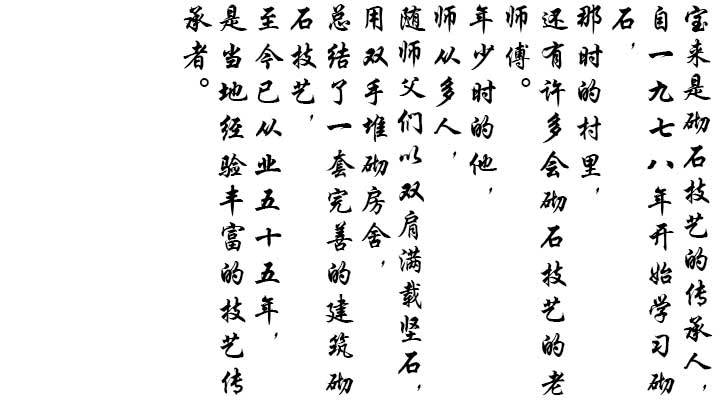 宝来是砌石技艺的传承人，
自一九七八年开始学习砌
石，
那时的村里，
还有许多会砌石技艺的老
师傅。
年少时的他，
师从多人，
随师父们以双肩满载坚石，
用双手堆砌房舍，
总结了一套完善的建筑砌
石技艺，
至今已从业五十五年，
是当地经验丰富的技艺传
承者。